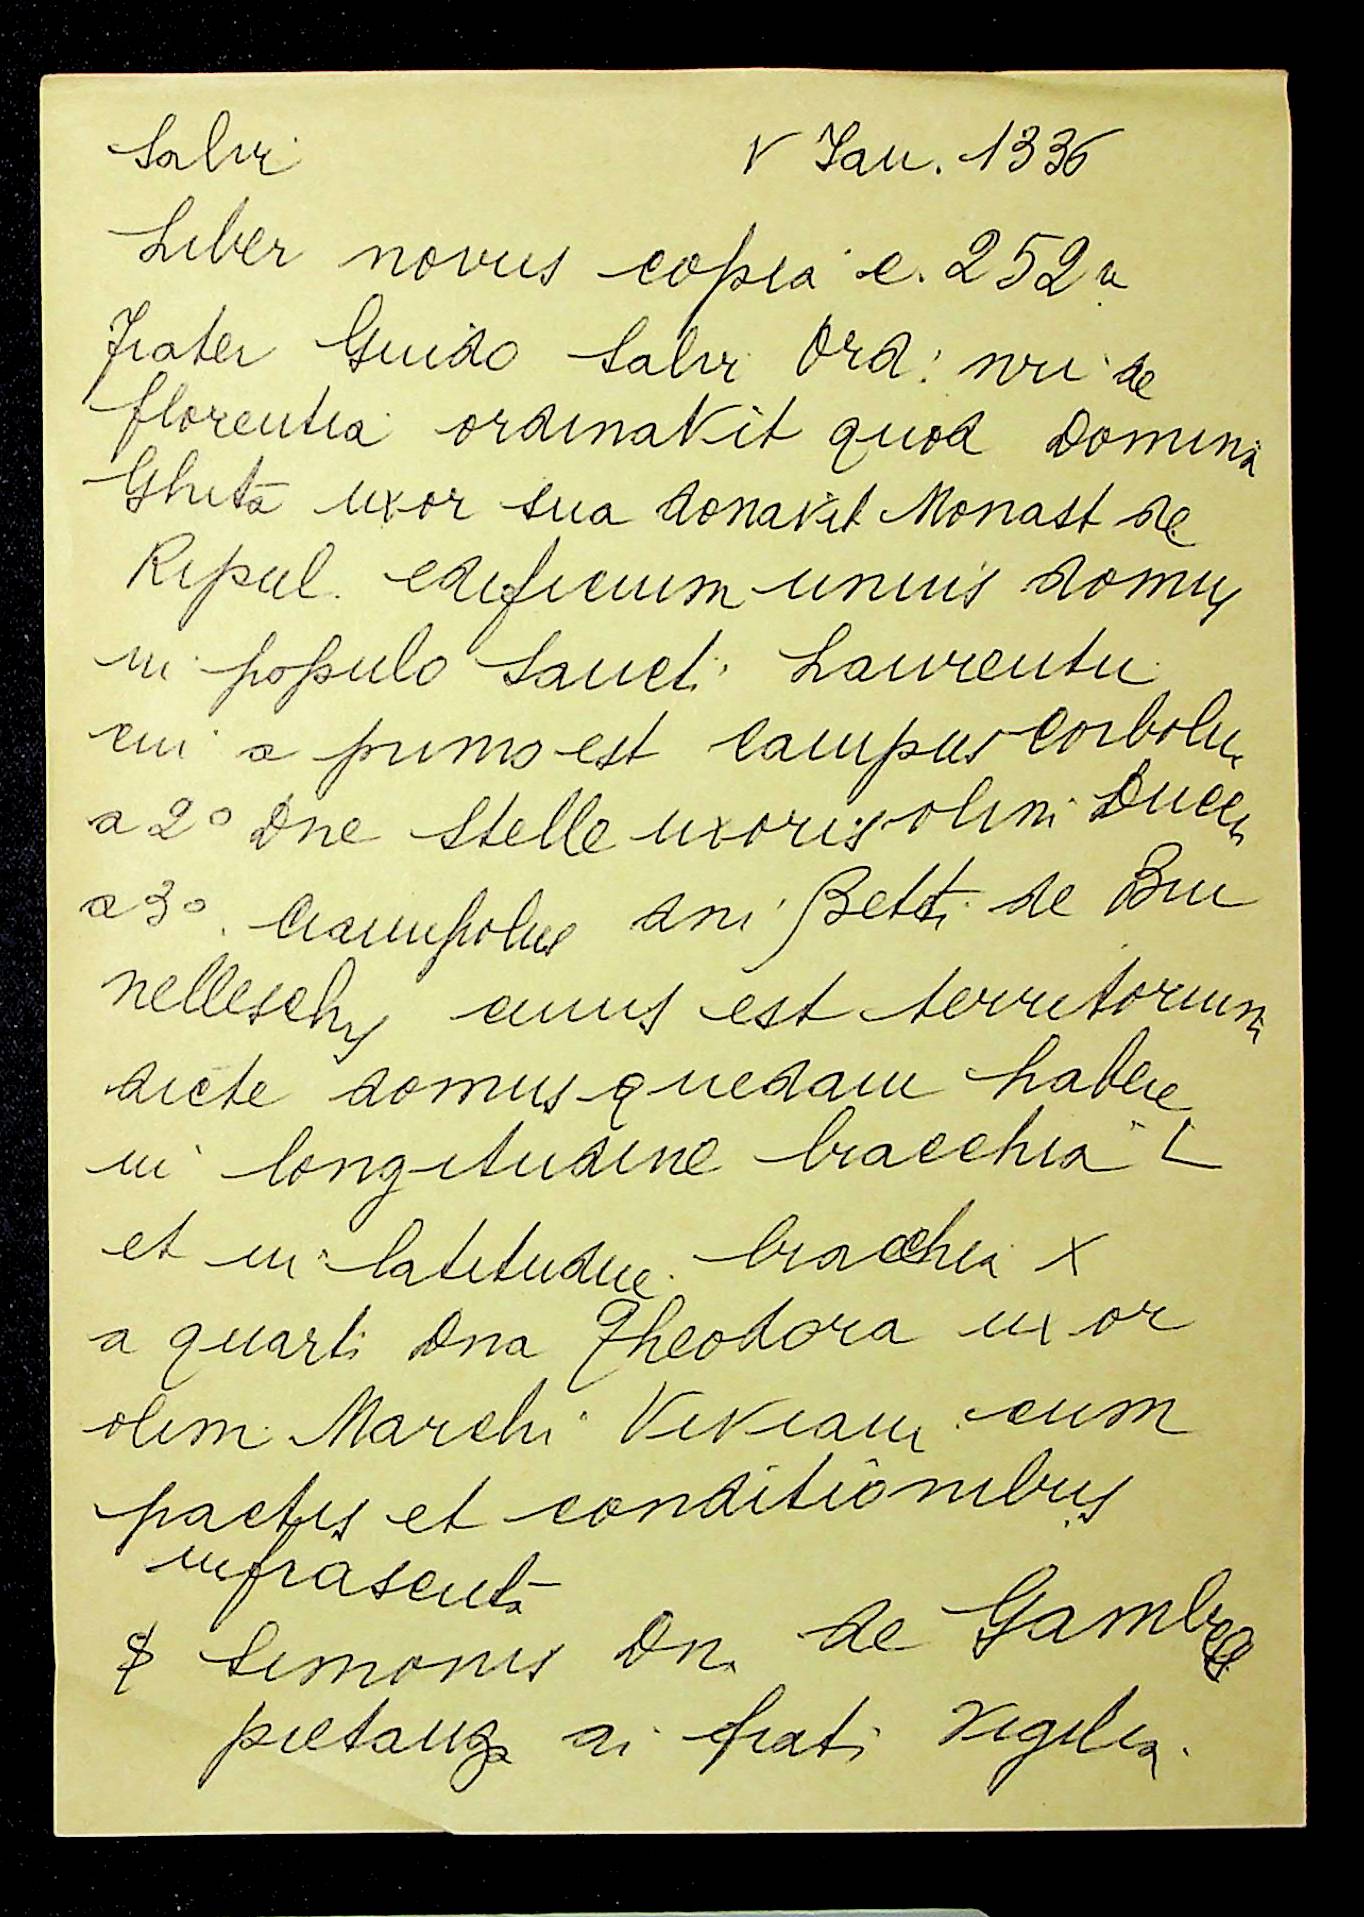 Salvi V Jan. 1336
Liber novus copia c. 252 v
Frater Guido Salvi Ord: nri de
florentia ordinavit quod Domina
Ghita uxor sua donavit Monast de
Ripul. edificium unius domus
in populo Sancti Laurentii
cui a primo est campus Corbolin
a 2º Dne Stelle uxoris olim Ducci
a 3º. Ciampolus dni Betti de Bru
nelleschis cuius est territorium
dicte domus quedam habere
in longitudine bracchia L
et in latitudine bracchia X
a quarti Dna Theodora uxor
olim Marchi Viviani cum
pactis et conditionibus
infrascrita
Simonis Dn. de
pietanza ai frati vigilia.